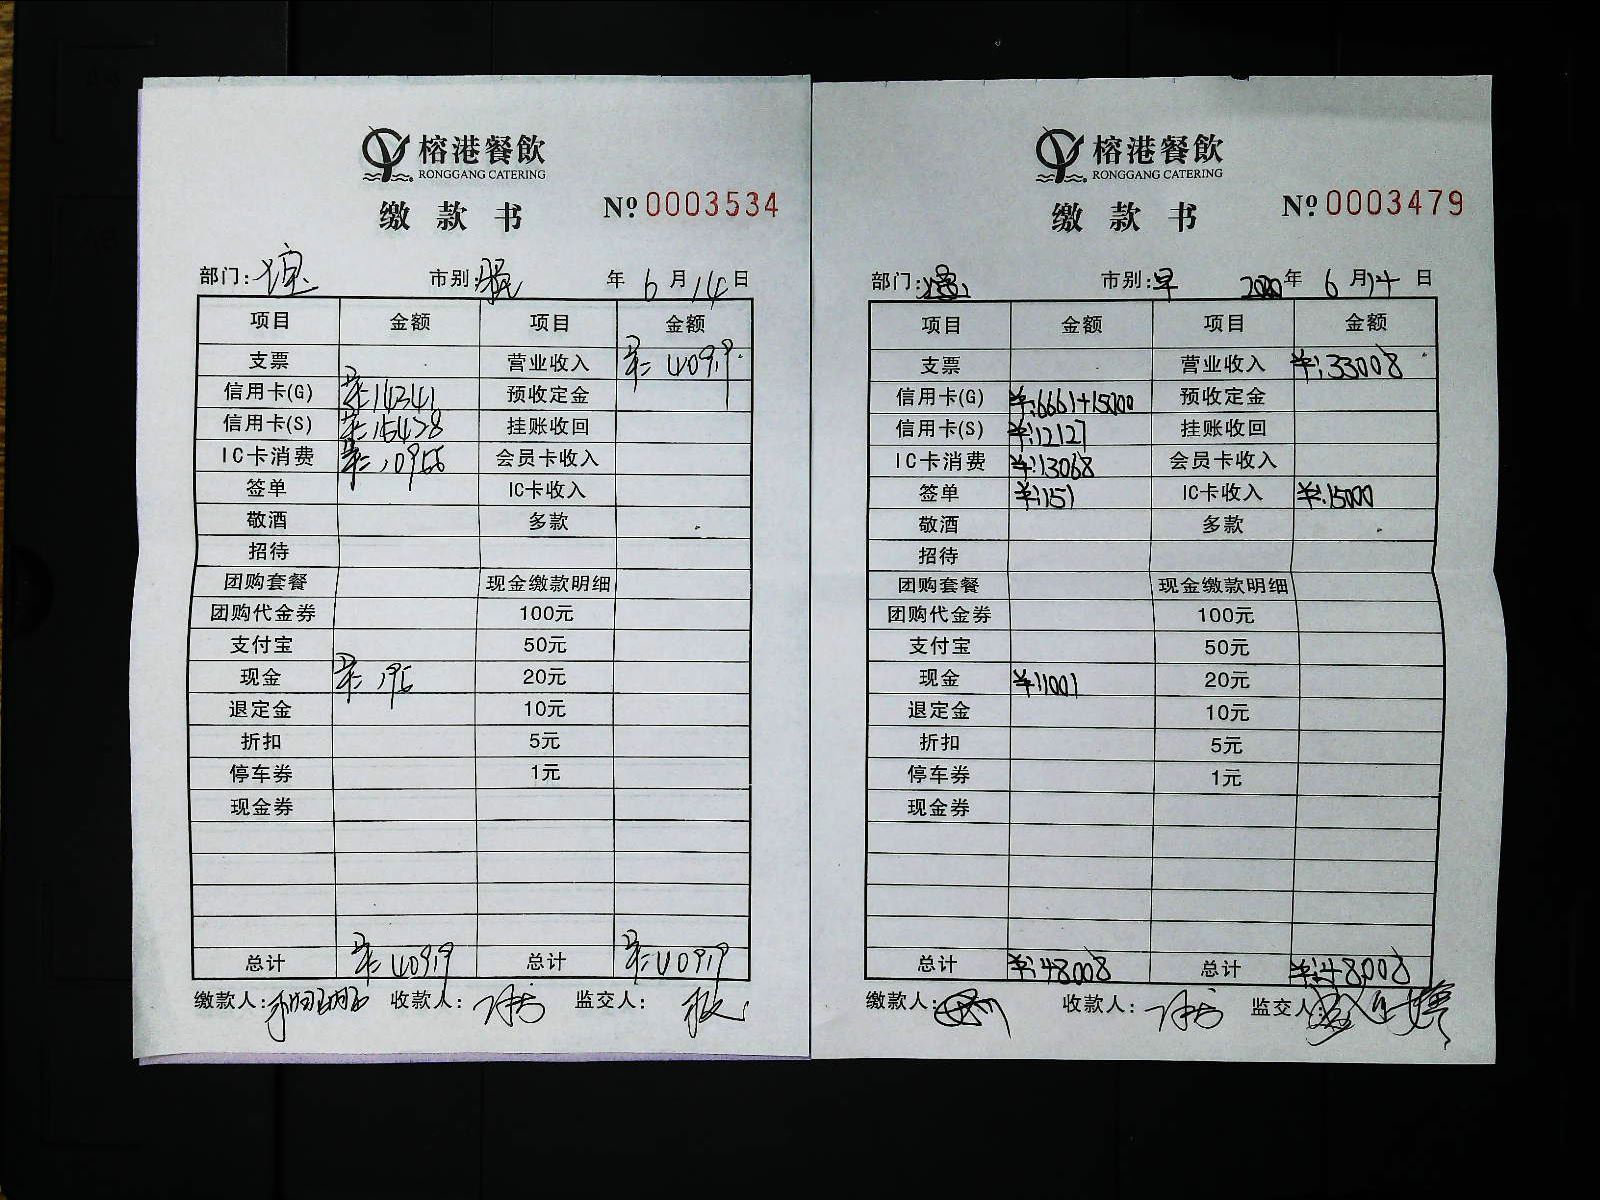 榕港餐飲
RONGGANG CATERING
缴款书 Nº 0003534
部门: 市别: 年 6 月 14 日
项目 金额 项目 金额
支票 营业收入
信用卡(G) 14341 预收定金
信用卡(S) 挂账收回
IC卡消费 会员卡收入
签单 IC卡收入
敬酒 多款
招待
团购套餐 现金缴款明细
团购代金券 100元
支付宝 50元
现金 20元
退定金 10元
折扣 5元
停车券 1元
现金券
总计 总计
缴款人: 收款人: 监交人:
榕港餐飲
RONGGANG CATERING
缴款书 Nº 0003479
部门: 市别: 早 2020 年 6 月 14 日
项目 金额 项目 金额
支票 营业收入 ¥:33008
信用卡(G) ¥:6661+15000 预收定金
信用卡(S) ¥:12127 挂账收回
IC卡消费 ¥:13068 会员卡收入
签单 ¥:151 IC卡收入 ¥:15000
敬酒 多款
招待
团购套餐 现金缴款明细
团购代金券 100元
支付宝 50元
现金 ¥:1001 20元
退定金 10元
折扣 5元
停车券 1元
现金券
总计 ¥:48008 总计 ¥:48008
缴款人: 收款人: 监交人: